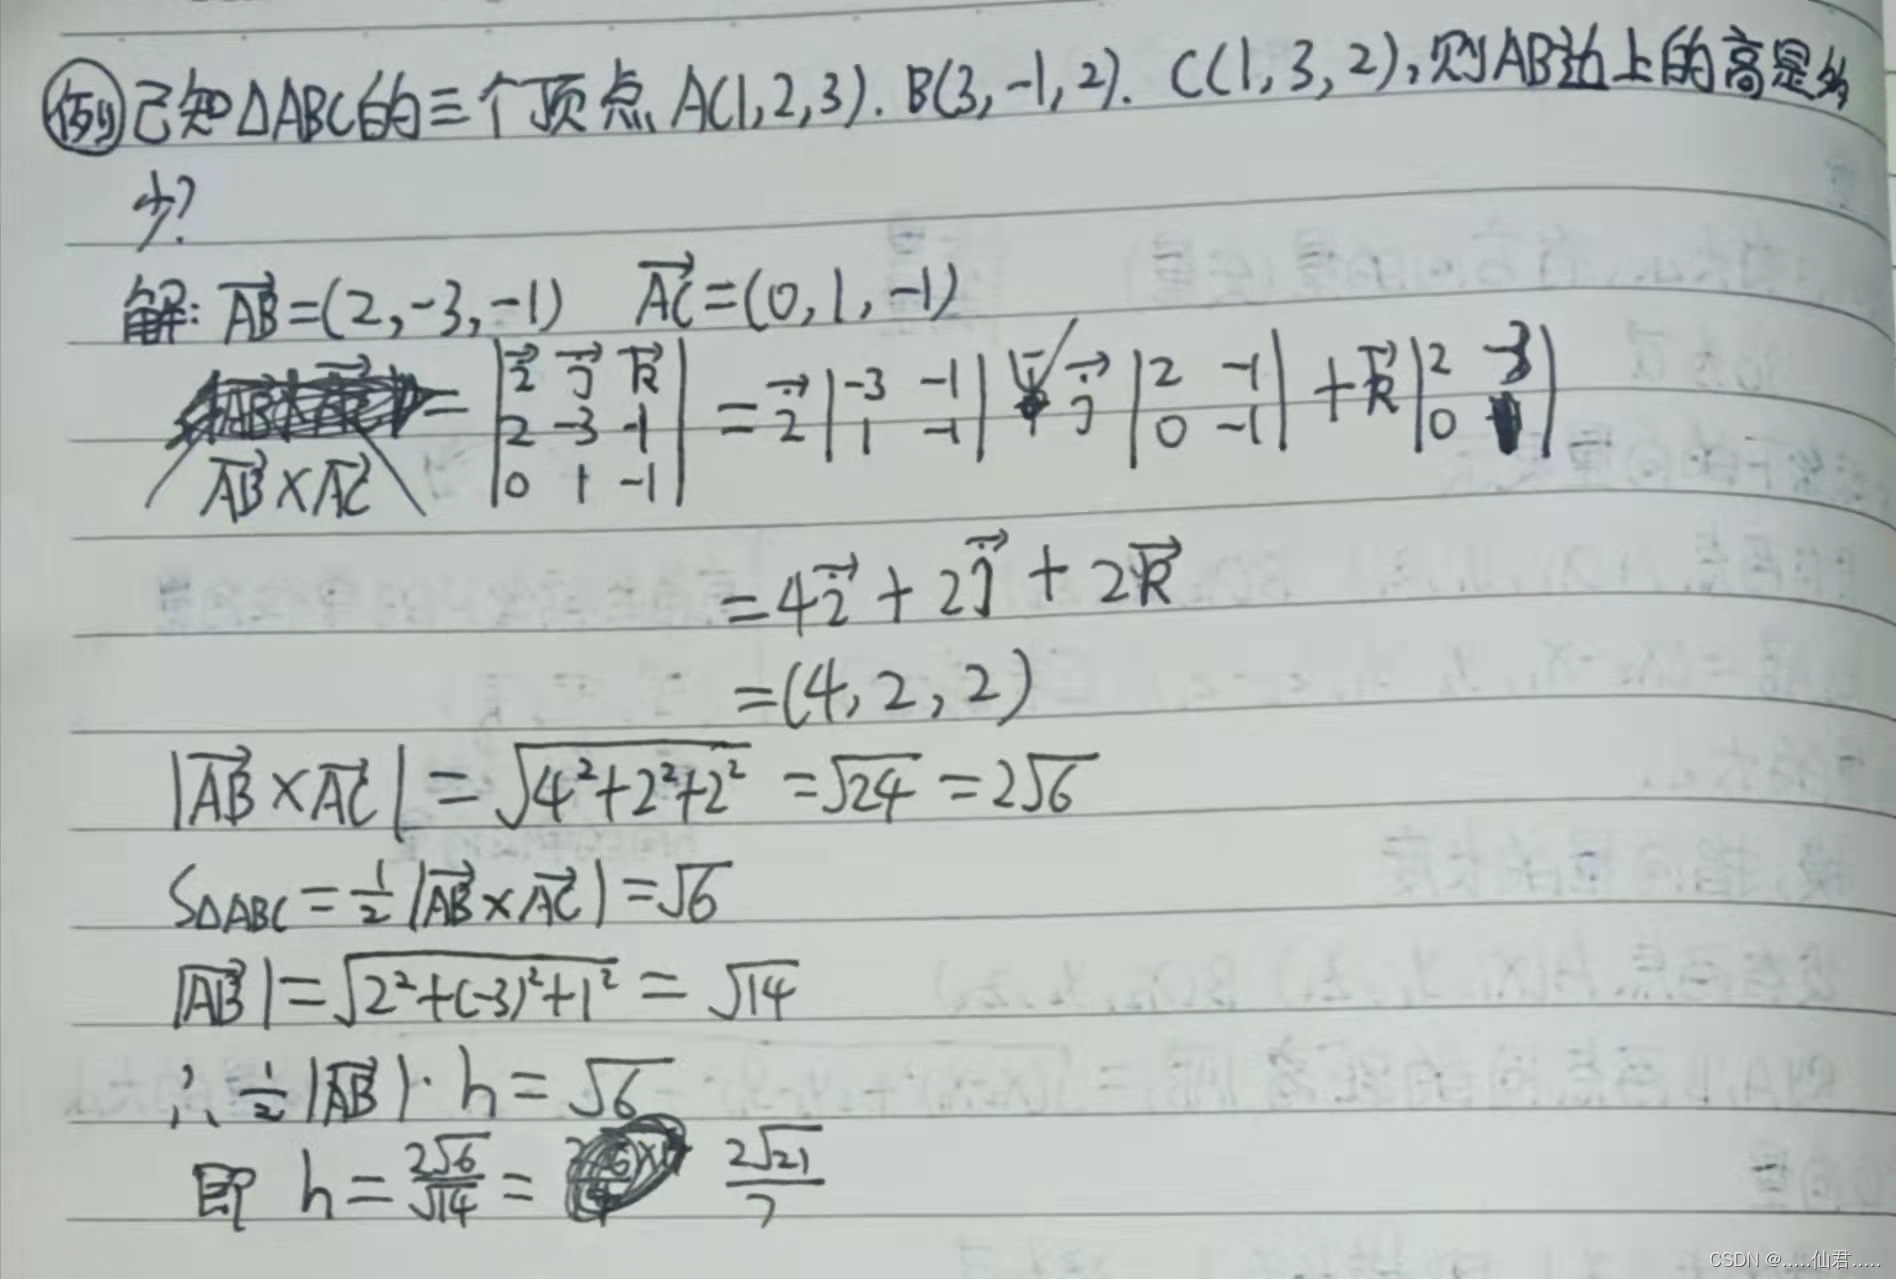 例 已知△ABC的三个顶点 A(1,2,3). B(3,-1,2). C(1,3,2),则AB边上的高是多
少?
解: AB→=(2,-3,-1) AC→=(0,1,-1)
AB→×AC→ = |i→ j→ k→; 2 -3 -1; 0 1 -1| = i→ |-3 -1; 1 -1| - j→ |2 -1; 0 -1| + k→ |2 -3; 0 1|
=4i→+2j→+2k→
=(4,2,2)
|AB→×AC→| = √(4²+2²+2²) = √24 = 2√6
S△ABC = 1/2 |AB→×AC→| = √6
|AB→| = √(2²+(-3)²+1²) = √14
∴ 1/2 |AB→|·h = √6
即 h = 2√6/√14 = 2√21/7
CSDN @.....仙君.....